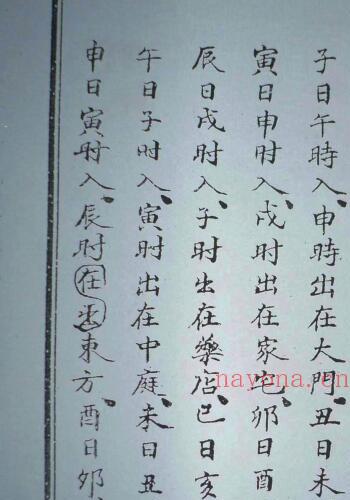 子日午時入、申時出在大門、丑日未
寅日申时入、戌时出在家宅、卯日酉
辰日戌时入、子时出在藥店、巳日亥
午日子时入、寅时出在中庭、未日丑
申日寅时入、辰时在出東方、酉日卯、
nayona.cn